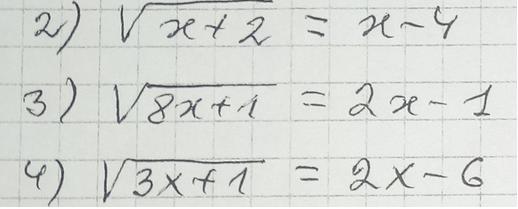 2) √(x+2) = x-4
3) √(8x+1) = 2x-1
4) √(3x+1) = 2x-6